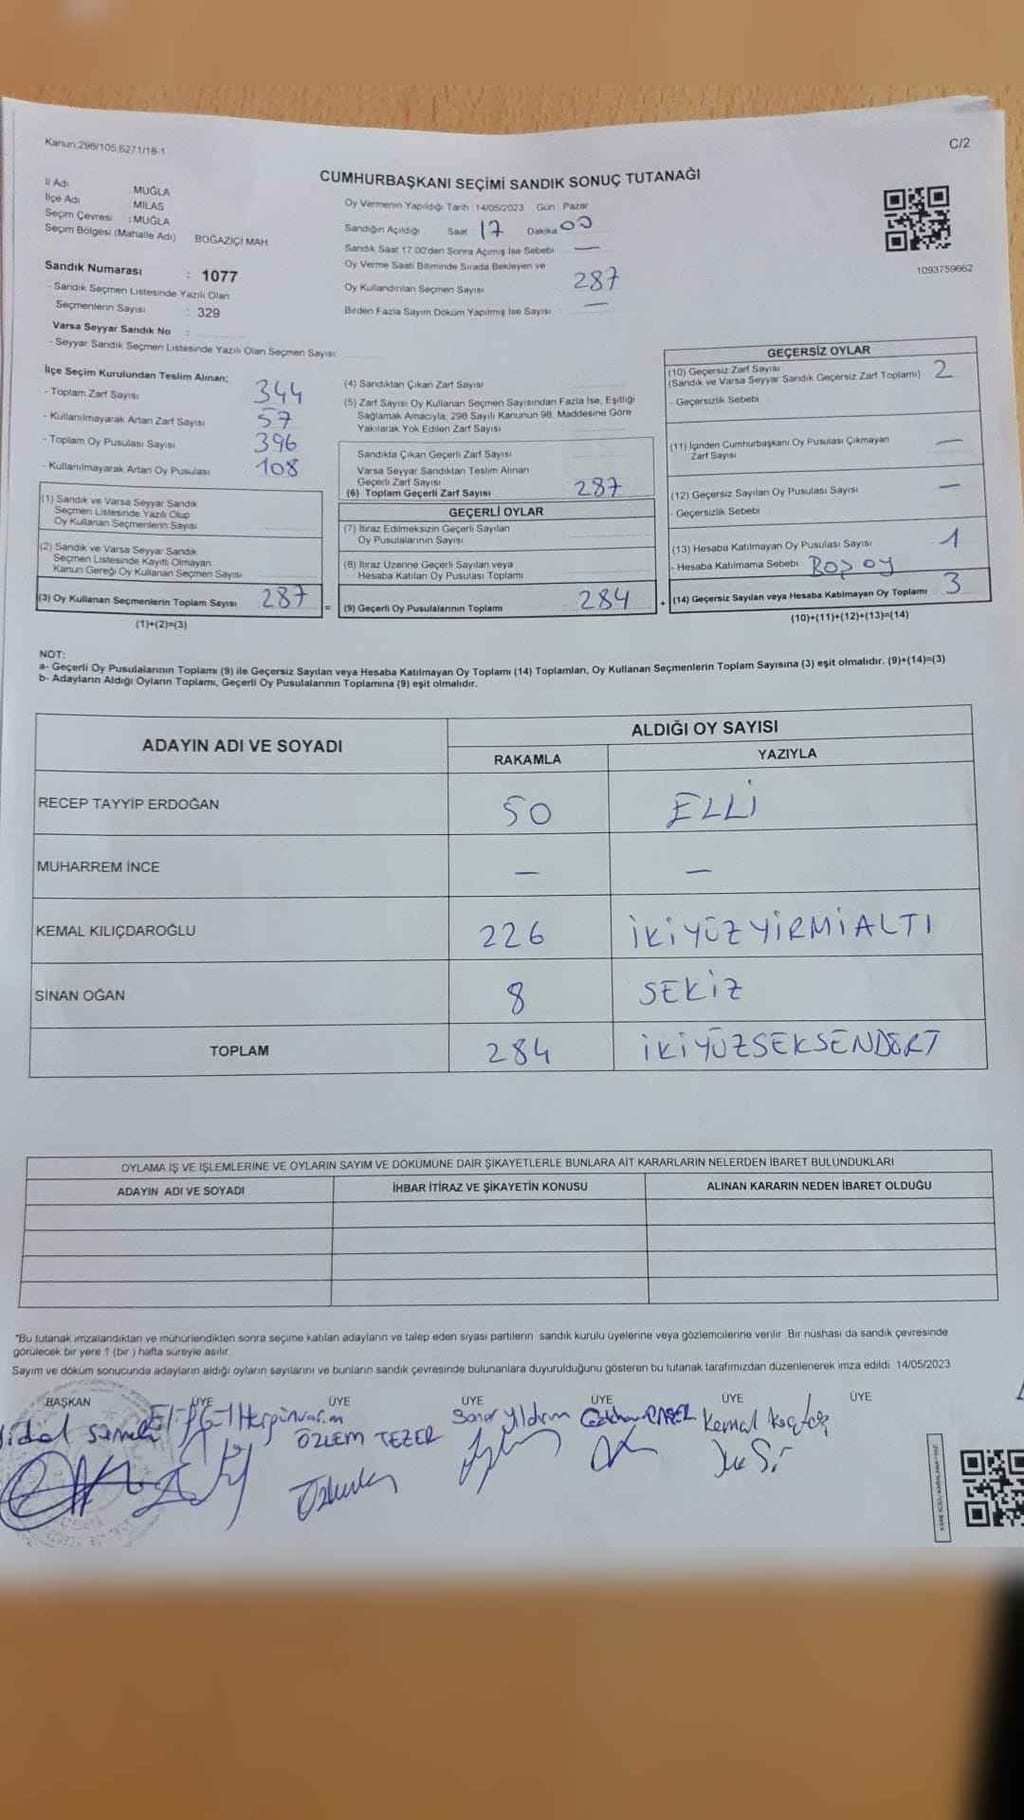 Kanun:298/105,6271/18-1
C/2
CUMHURBAŞKANI SEÇİMİ SANDIK SONUÇ TUTANAĞI
İl Adı : MUĞLA
İlçe Adı : MİLAS
Seçim Çevresi : MUĞLA
Seçim Bölgesi (Mahalle Adı) BOĞAZİÇİ MAH
Sandık Numarası : 1077
- Sandık Seçmen Listesinde Yazılı Olan
Seçmenlerin Sayısı : 329
Varsa Seyyar Sandık No :
- Seyyar Sandık Seçmen Listesinde Yazılı Olan Seçmen Sayısı
Oy Vermenin Yapıldığı Tarih : 14/05/2023 Gün : Pazar
Sandığın Açıldığı Saat 17 Dakika 00
Sandık Saat 17:00'den Sonra Açımış İse Sebebi —
Oy Verme Saati Bitiminde Sırada Bekleyen ve
Oy Kullandırılan Seçmen Sayısı 287
Birden Fazla Sayım Döküm Yapılmış İse Sayısı —
1093759662
İlçe Seçim Kurulundan Teslim Alınan;
- Toplam Zarf Sayısı 344
- Kullanılmayarak Artan Zarf Sayısı 57
- Toplam Oy Pusulası Sayısı 396
- Kullanılmayarak Artan Oy Pusulası 108
(1) Sandık ve Varsa Seyyar Sandık
Seçmen Listesinde Yazılı Olup
Oy Kullanan Seçmenlerin Sayısı
(2) Sandık ve Varsa Seyyar Sandık
Seçmen Listesinde Kayıtlı Olmayan
Kanun Gereği Oy Kullanan Seçmen Sayısı
(3) Oy Kullanan Seçmenlerin Toplam Sayısı 287 =
(1)+(2)=(3)
(4) Sandıktan Çıkan Zarf Sayısı
(5) Zarf Sayısı Oy Kullanan Seçmen Sayısından Fazla İse, Eşitliği
Sağlamak Amacıyla; 298 Sayılı Kanunun 98. Maddesine Göre
Yakılarak Yok Edilen Zarf Sayısı
Sandıkta Çıkan Geçerli Zarf Sayısı
Varsa Seyyar Sandıktan Teslim Alınan
Geçerli Zarf Sayısı
(6) Toplam Geçerli Zarf Sayısı 287
GEÇERLİ OYLAR
(7) İtiraz Edilmeksizin Geçerli Sayılan
Oy Pusulalarının Sayısı
(8) İtiraz Üzerine Geçerli Sayılan veya
Hesaba Katılan Oy Pusulası Toplamı
(9) Geçerli Oy Pusulalarının Toplamı 284 +
GEÇERSİZ OYLAR
(10) Geçersiz Zarf Sayısı
(Sandık ve Varsa Seyyar Sandık Geçersiz Zarf Toplamı) 2
- Geçersizlik Sebebi
(11) İçinden Cumhurbaşkanı Oy Pusulası Çıkmayan
Zarf Sayısı —
(12) Geçersiz Sayılan Oy Pusulası Sayısı —
- Geçersizlik Sebebi
(13) Hesaba Katılmayan Oy Pusulası Sayısı 1
- Hesaba Katılmama Sebebi Boş oy
(14) Geçersiz Sayılan veya Hesaba Katılmayan Oy Toplamı 3
(10)+(11)+(12)+(13)=(14)
NOT:
a- Geçerli Oy Pusulalarının Toplamı (9) ile Geçersiz Sayılan veya Hesaba Katılmayan Oy Toplamı (14) Toplamları, Oy Kullanan Seçmenlerin Toplam Sayısına (3) eşit olmalıdır. (9)+(14)=(3)
b- Adayların Aldığı Oyların Toplamı, Geçerli Oy Pusulalarının Toplamına (9) eşit olmalıdır.
ADAYIN ADI VE SOYADI
ALDIĞI OY SAYISI
RAKAMLA YAZIYLA
RECEP TAYYİP ERDOĞAN 50 ELLİ
MUHARREM İNCE — —
KEMAL KILIÇDAROĞLU 226 İKİYÜZYİRMİALTI
SİNAN OĞAN 8 SEKİZ
TOPLAM 284 İKİYÜZSEKSENDÖRT
OYLAMA İŞ VE İŞLEMLERİNE VE OYLARIN SAYIM VE DÖKÜMÜNE DAİR ŞİKAYETLERLE BUNLARA AİT KARARLARIN NELERDEN İBARET BULUNDUKLARI
ADAYIN ADI VE SOYADI İHBAR İTİRAZ VE ŞİKAYETİN KONUSU ALINAN KARARIN NEDEN İBARET OLDUĞU
*Bu tutanak imzalandıktan ve mühürlendikten sonra seçime katılan adayların ve talep eden siyasi partilerin sandık kurulu üyelerine veya gözlemcilerine verilir. Bir nüshası da sandık çevresinde
görülecek bir yere 1 (bir ) hafta süreyle asılır.
Sayım ve döküm sonucunda adayların aldığı oyların sayılarını ve bunların sandık çevresinde bulunanlara duyurulduğunu gösteren bu tutanak tarafımızdan düzenlenerek imza edildi. 14/05/2023
BAŞKAN ÜYE ÜYE ÜYE ÜYE ÜYE ÜYE
ÖZLEM TEZER
Kemal